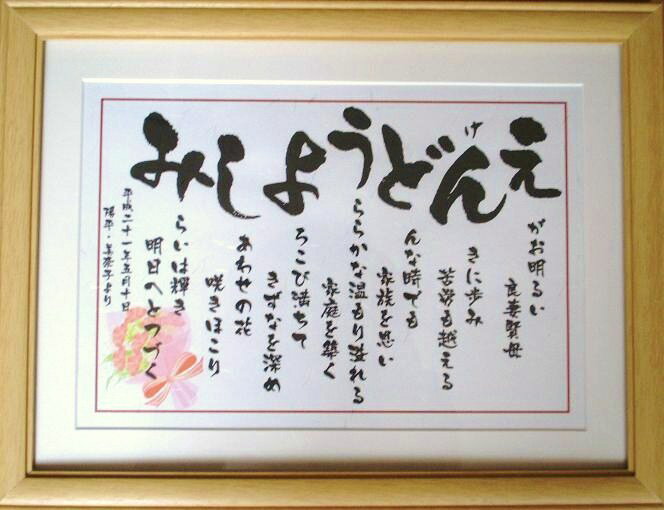 えがお明るい
良妻賢母
げんきに歩み
苦労も越える
どんな時でも
家族を思い
うららかな温もり溢れる
家庭を築く
よろこび満ちて
きずなを深め
しあわせの花
咲きほこり
みらいは輝き
明日へとつづく
平成二十一年五月十日
陽平・美奈子より